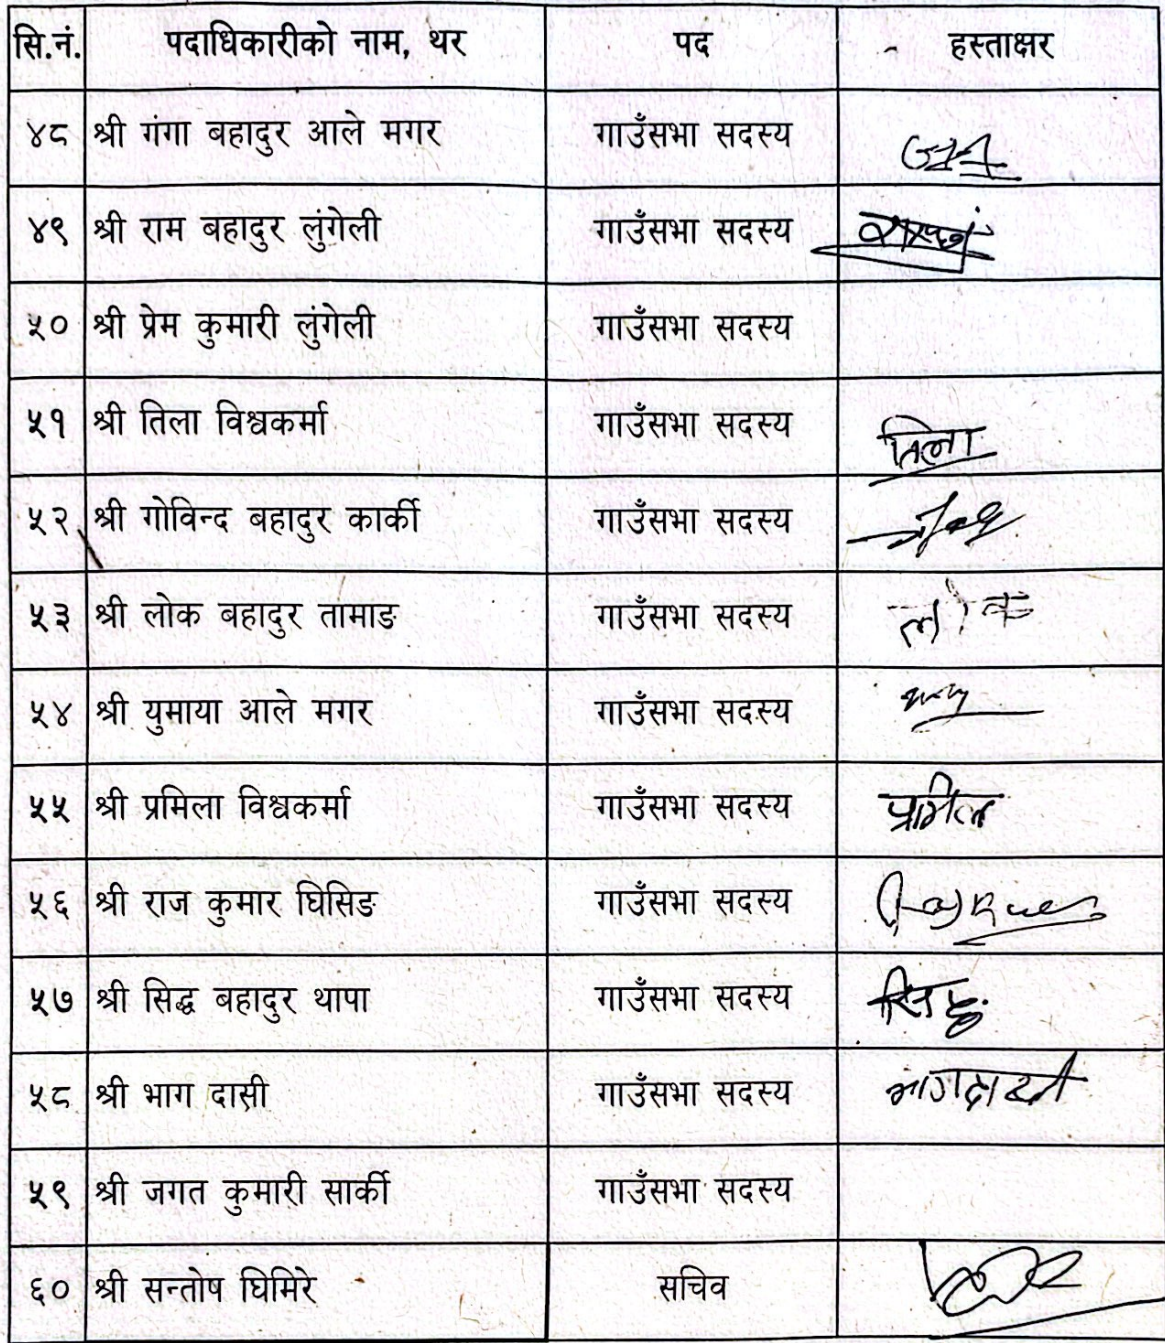 सि.नं. पदाधिकारीको नाम, थर पद हस्ताक्षर
४८ श्री गंगा बहादुर आले मगर गाउँसभा सदस्य
४९ श्री राम बहादुर लुंगेली गाउँसभा सदस्य
५० श्री प्रेम कुमारी लुंगेली गाउँसभा सदस्य
५१ श्री तिला विश्वकर्मा गाउँसभा सदस्य तिला
५२ श्री गोविन्द बहादुर कार्की गाउँसभा सदस्य
५३ श्री लोक बहादुर तामाङ गाउँसभा सदस्य लोक
५४ श्री युमाया आले मगर गाउँसभा सदस्य
५५ श्री प्रमिला विश्वकर्मा गाउँसभा सदस्य
५६ श्री राज कुमार घिसिङ गाउँसभा सदस्य
५७ श्री सिद्ध बहादुर थापा गाउँसभा सदस्य
५८ श्री भाग दासी गाउँसभा सदस्य
५९ श्री जगत कुमारी सार्की गाउँसभा सदस्य
६० श्री सन्तोष घिमिरे सचिव